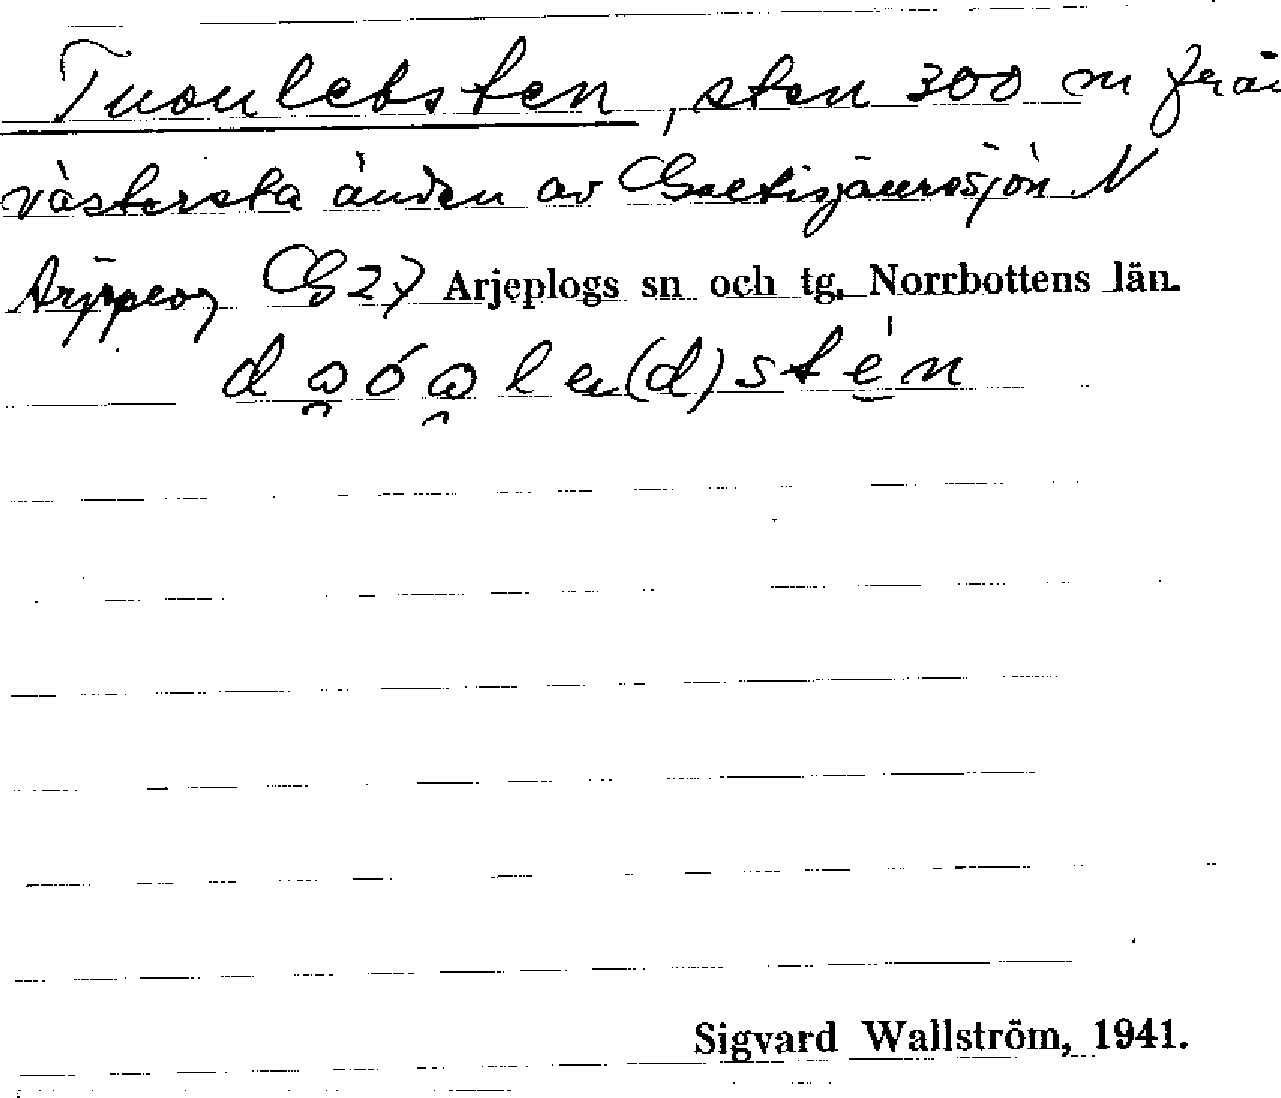 Tuoulebsten, sten 300 m från
västersta änden av Gaetisjäurosjön N
Arjeplog G 27 Arjeplogs sn och tg. Norrbottens län.
Sigvard Wallström, 1941.